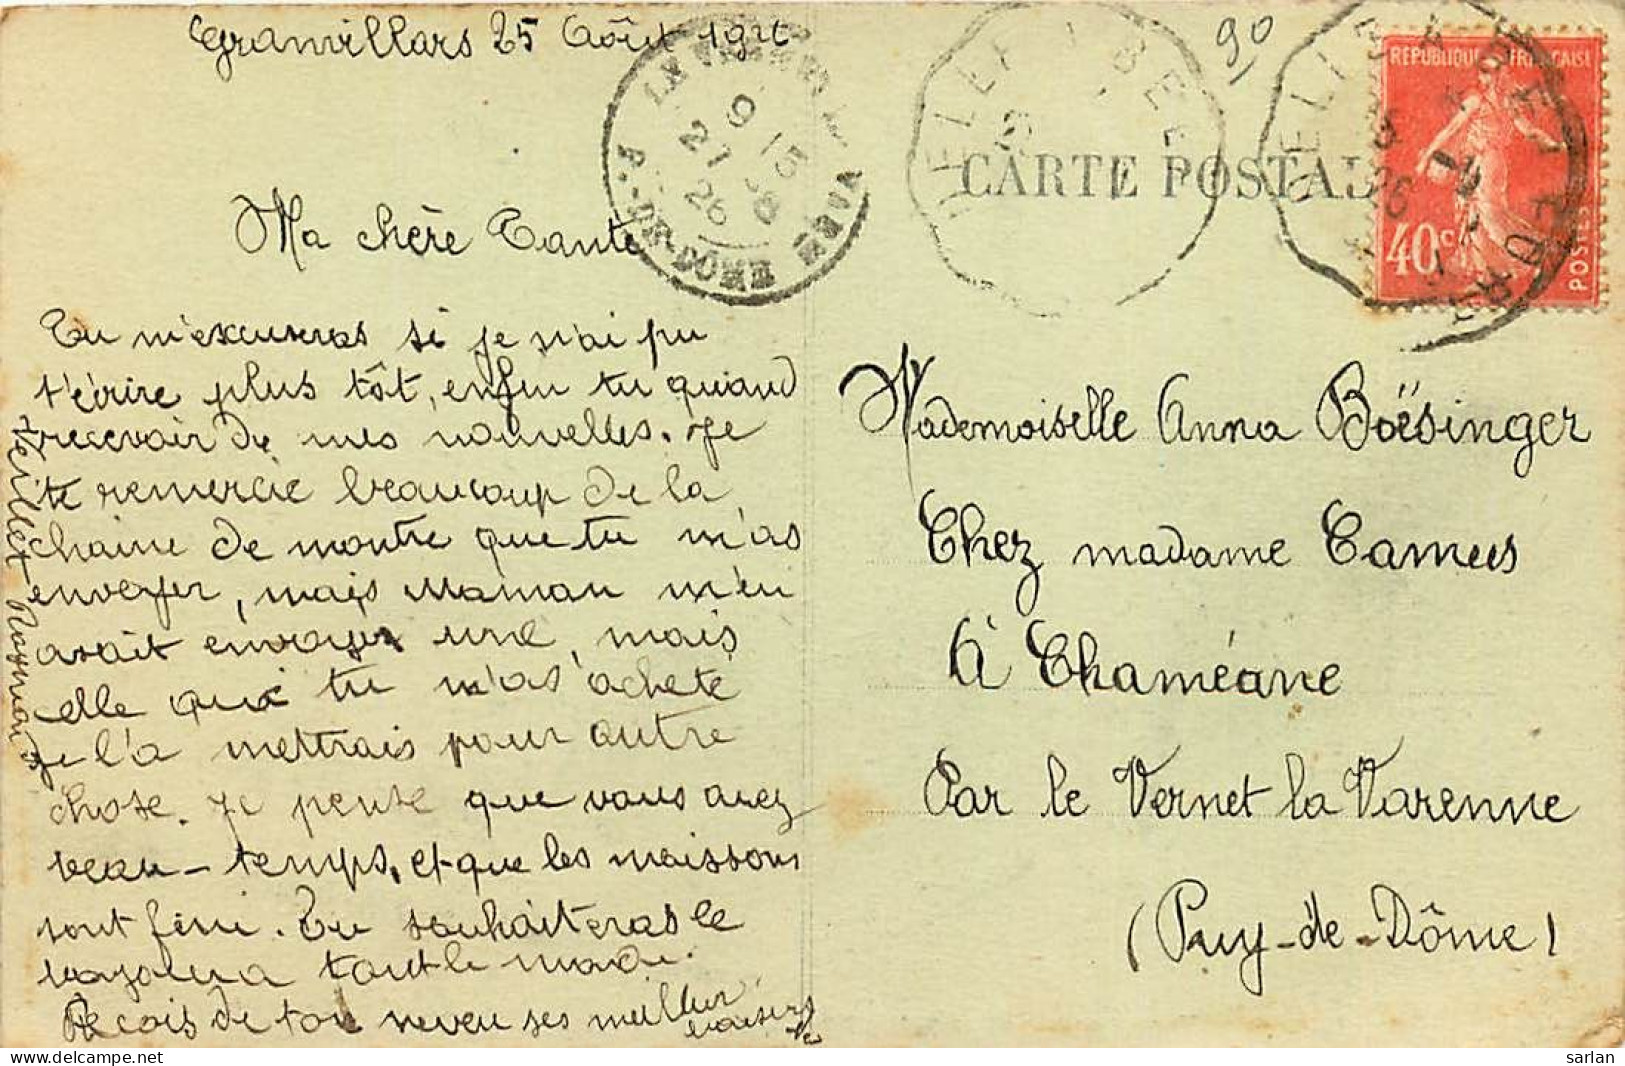 Granvillars 25 Août 1926
Ma chère Tante
Tu m'excuseras si je n'ai pu
t'écrire plus tôt, enfin tu quand
recevoir de mes nouvelles. Je
te remercie beaucoup de la
chaine de montre que tu m'as
envoyer, mais Maman m'en
avait envoyer une, mais
elle que tu m'as acheté
je l'a mettrais pour autre
chose. Je pense que vous avez
beau-temps, et que les moissons
sont fini. Tu souhaiteras le
tout le monde.
Recois de ton neveu ses meilleur
baisers
Raymond
9 15
27 8
26
P.-DE-DOME
CARTE POSTALE
90
REPUBLIQUE FRANÇAISE
40c
POSTES
Mademoiselle Anna Boësinger
Chez madame Camus
à Chaméane
Par le Vernet la Varenne
(Puy-de-Dôme)
sarlan